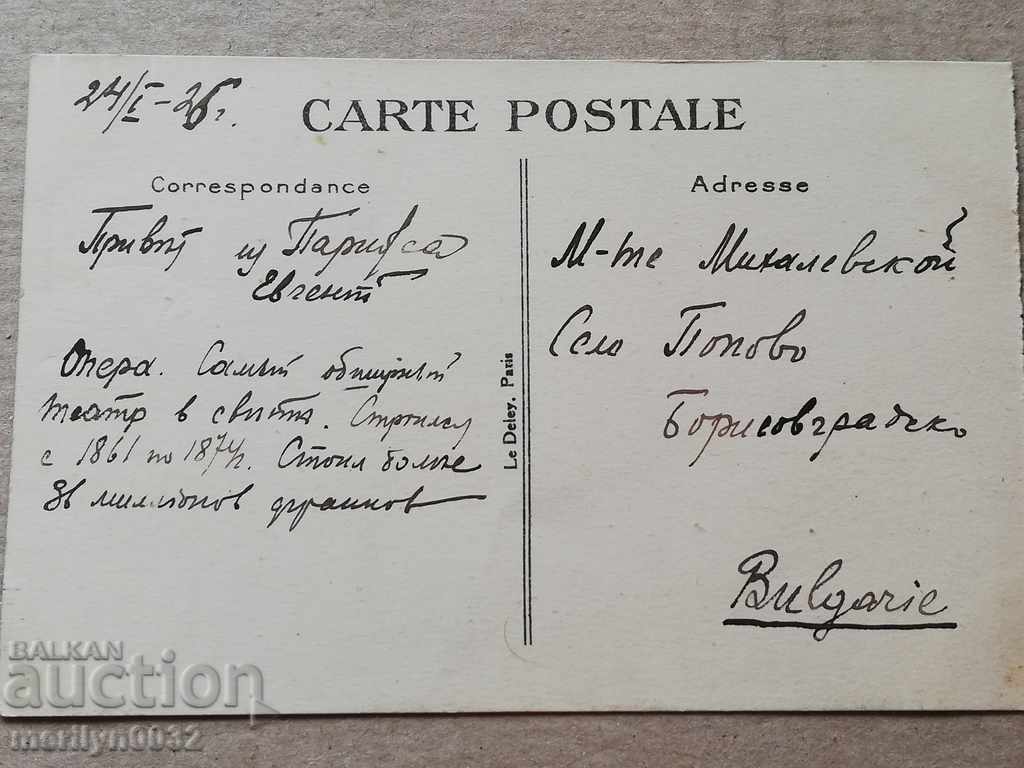 24/I-26г.
CARTE POSTALE
Correspondance
Привѣт из Парижса
Евгент
Опера. Самый обширный
театр в свѣтѣ. Строился
с 1861 по 1874 г. Стоил болѣе
36 миллионов франков
Le Deley, Paris
Adresse
M-me Михалевской
Село Попово
Борисовградско
Bulgarie
BALKAN
auction
merilyn0032